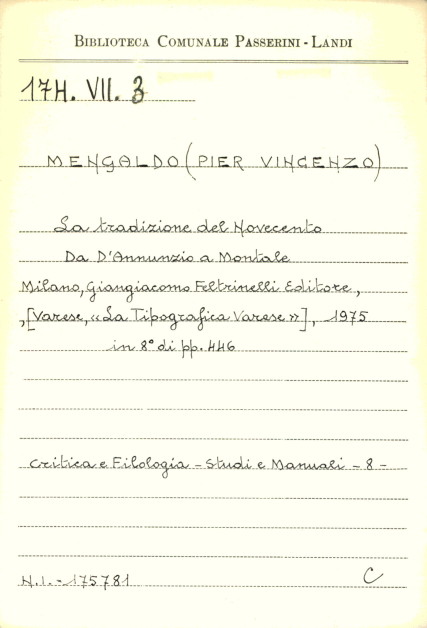 BIBLIOTECA COMUNALE PASSERINI - LANDI
17H. VII. 3
MENGALDO (PIER VINCENZO)
La tradizione del Novecento
Da D'Annunzio a Montale
Milano, Giangiacomo Feltrinelli Editore,
,[Varese, «La Tipografica Varese»], 1975
in 8° di pp. 446
Critica e Filologia - Studi e Manuali - 8 -
N.I. - 175781 C